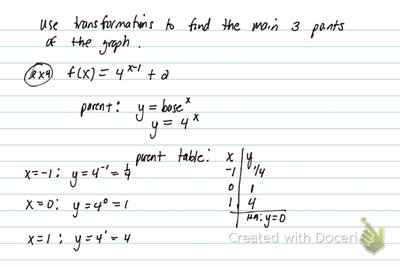 Use transformations to find the main 3 points
of the graph.
ex4 f(x) = 4^(x-1) + 2
parent: y = base^x
y = 4^x
parent table: x y
-1 1/4
0 1
1 4
HA: y=0
x=-1: y=4^-1 = 1/4
x=0: y=4^0 = 1
x=1: y=4^1 = 4
Created with Doceri